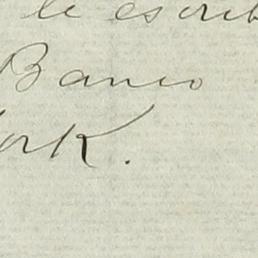 le escrib
Banco
ork.